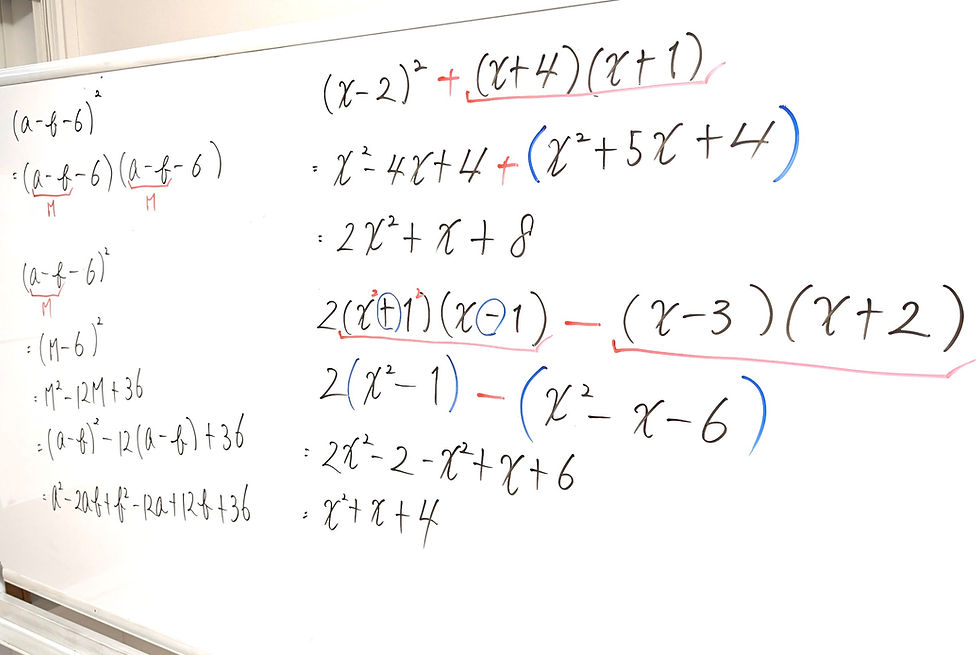 (a-b-6)²
=(a-b-6)(a-b-6)
M M
(a-b-6)²
M
=(M-6)²
=M²-12M+36
=(a-b)²-12(a-b)+36
=a²-2ab+b²-12a+12b+36
(x-2)²+(x+4)(x+1)
=x²-4x+4+(x²+5x+4)
=2x²+x+8
2(x²+1²)(x-1)-(x-3)(x+2)
2(x²-1)-(x²-x-6)
=2x²-2-x²+x+6
=x²+x+4